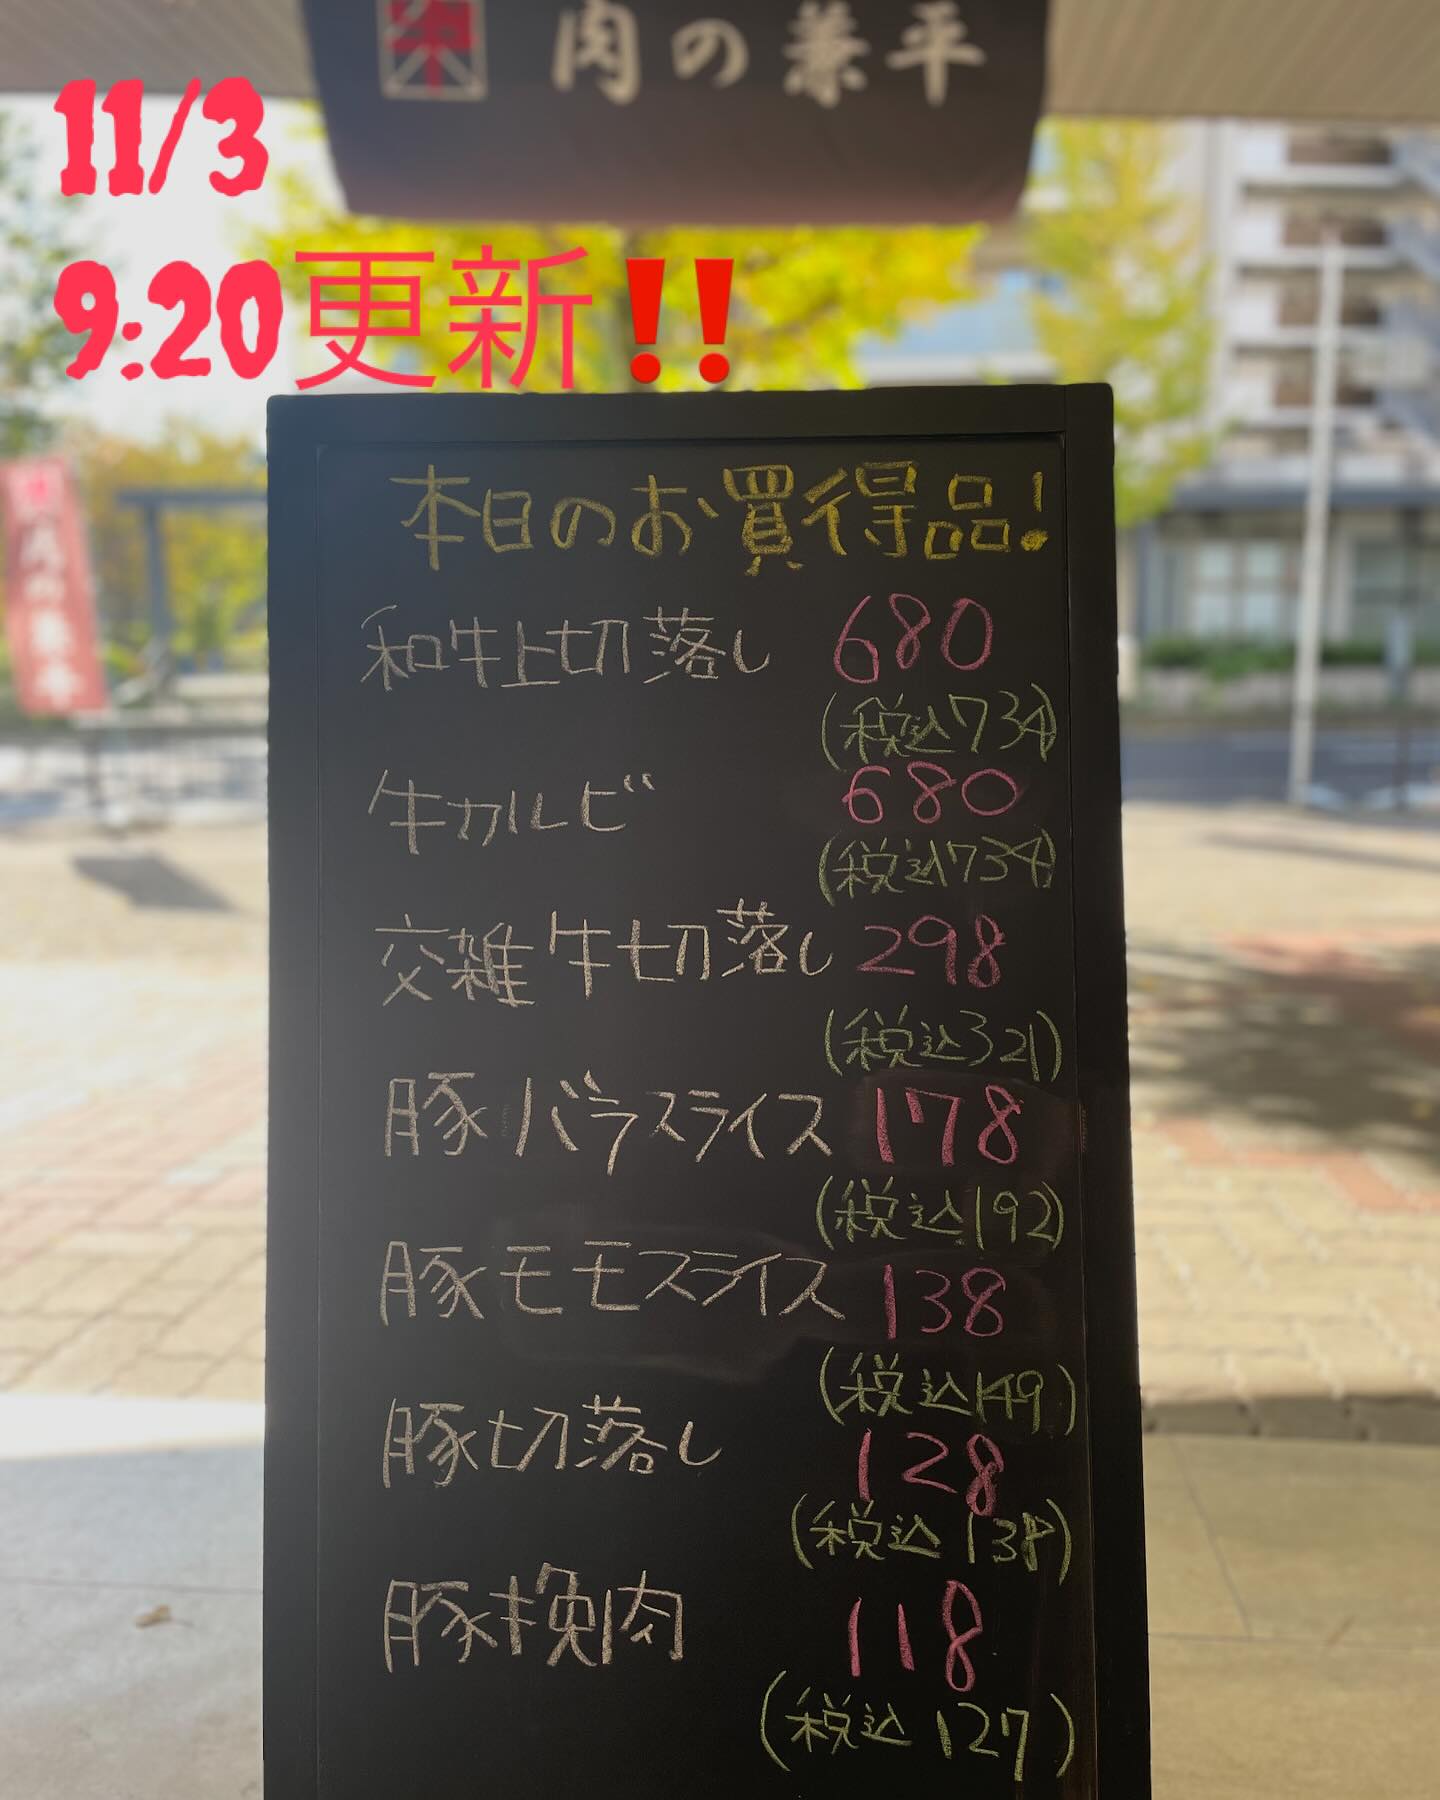 肉の兼平
11/3
9:20更新‼
肉の兼平
本日のお買得品!
和牛上切落し 680
(税込734)
牛カルビ 680
(税込734)
交雑牛切落し 298
(税込321)
豚バラスライス 178
(税込192)
豚モモスライス 138
(税込149)
豚切落し 128
(税込138)
豚挽肉 118
(税込127)